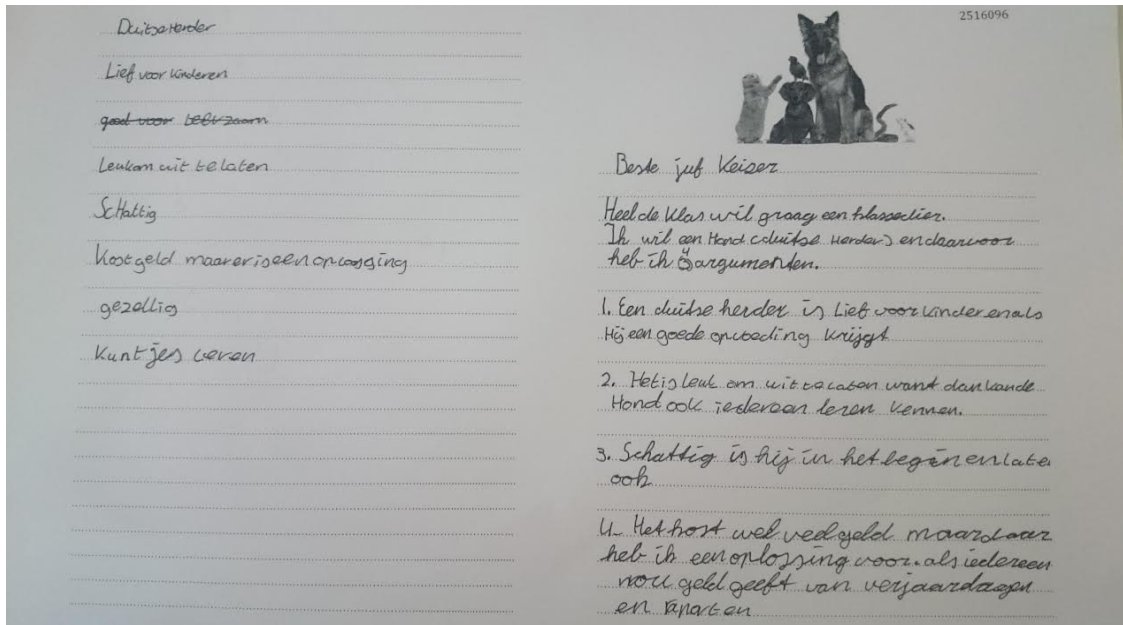 Duitse Herder
Lief voor kinderen
goed voor leerzaam
Leuk om uit te laten
Schattig
Kost geld maar er is een oplossing
gezellig
Kuntjes leren
2516096
Beste juf Keizer
Heel de klas wil graag een klassedier.
Ik wil een Hond (duitse Herder) en daarvoor
heb ik argumenten.
1. Een duitse herder is Lief voor kinderen als
Hij een goede opvoeding krijgt
2. Het is leuk om uit te laten want dan kan de
Hond ook iedereen leren kennen.
3. Schattig is hij in het begin en late
ook
4. Het kost wel veel geld maar daar
heb ik een oplossing voor. als iedereen
nou geld geeft van verjaardagen
en